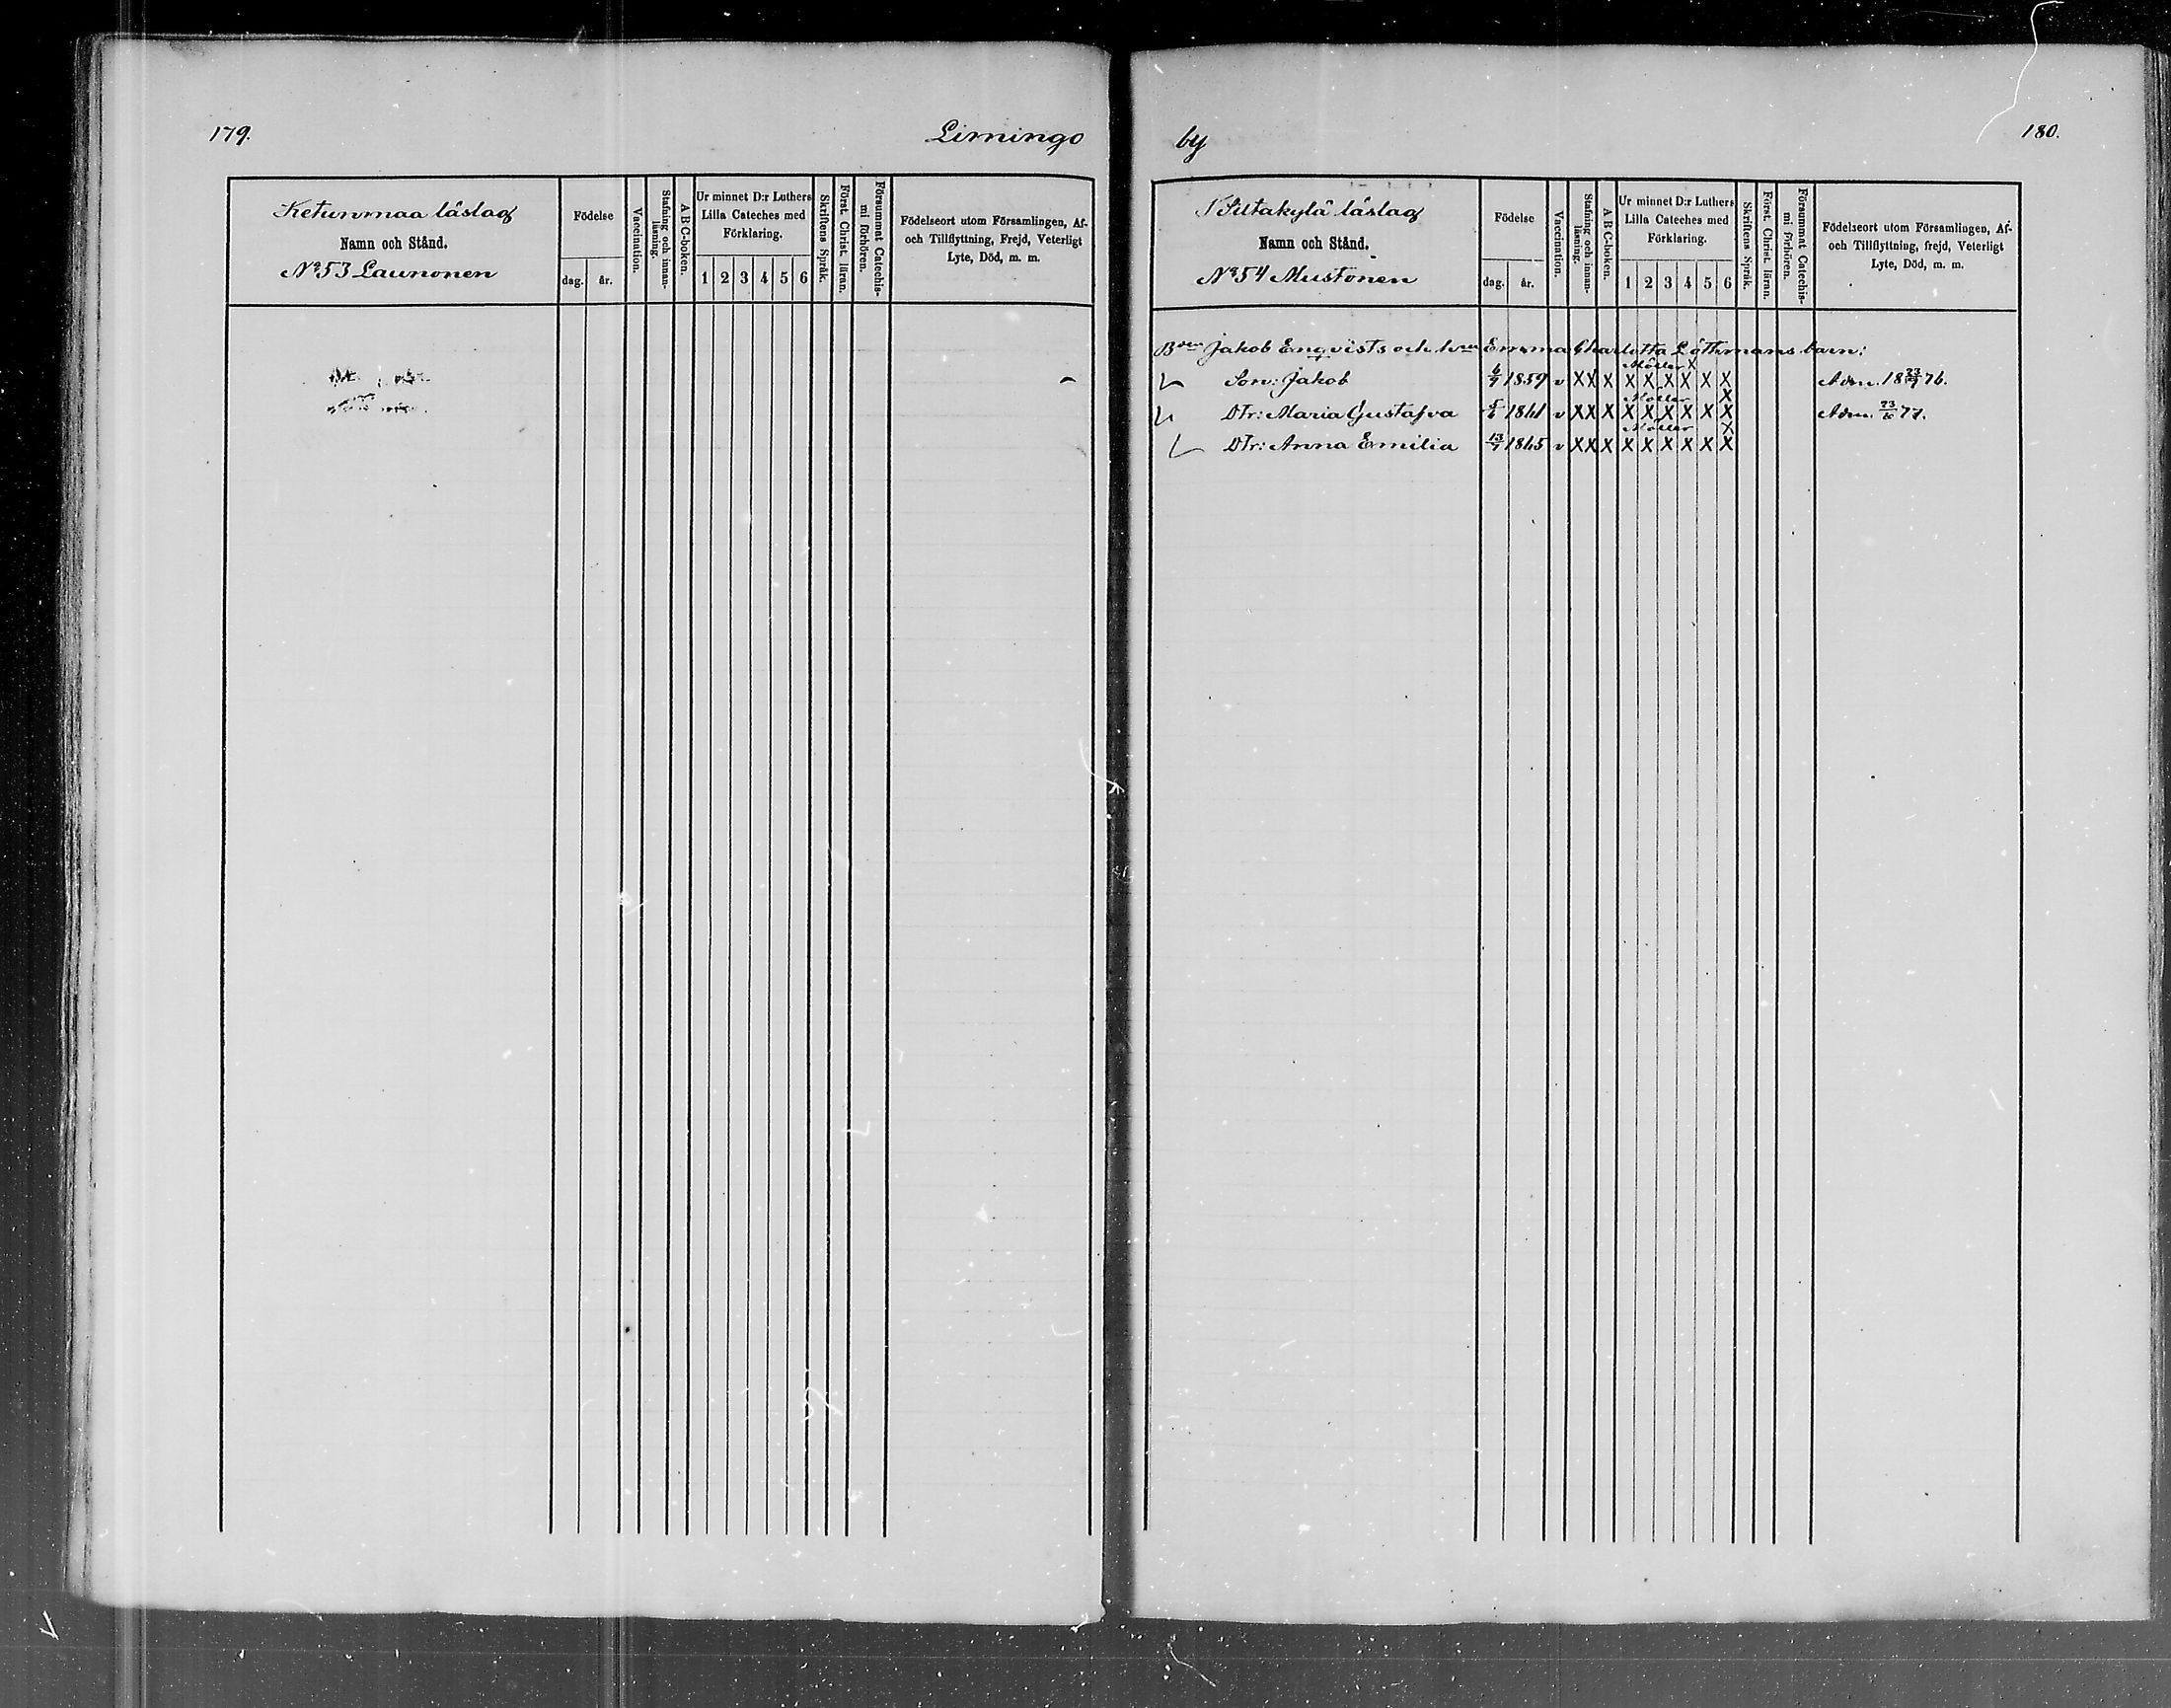 179.
Limingo
Ketunmaa läslag
Namn och Stånd.
No 53 Launonen
Födelse
dag. år.
Vaccination.
Stafning och innan-läsning.
A B C-boken.
Ur minnet D:r Luthers
Lilla Cateches med
Förklaring.
1 2 3 4 5 6
Skriftens Språk.
Först. Christ. läran.
Försummat Catechis-
mi förhören.
Födelseort utom Församlingen, Af-
och Tillflyttning, Frejd, Veterligt
Lyte, Död, m. m.
by
180.
läslag
Namn och Stånd.
No 54 Mustonen
Födelse
dag. år.
Vaccination.
Stafning och innan-läsning.
A B C-boken.
Ur minnet D:r Luthers
Lilla Cateches med
Förklaring.
1 2 3 4 5 6
Skriftens Språk.
Först. Christ. läran.
Försummat Catechis-
mi förhören.
Födelseort utom Församlingen, Af-
och Tillflyttning, frejd, Veterligt
Lyte, Död, m. m.
Jakob Enqvists och Emma Charlotta Löthmans barn:
Möller X
Son: Jakob 1859 v X X X X X X X X X Adm. 76.
Möller X
Dtr: Maria Gustafva 1861 v X X X X X X X X X Adm. 77.
Möller X
Dtr: Anna Emilia 1865 v X X X X X X X X X